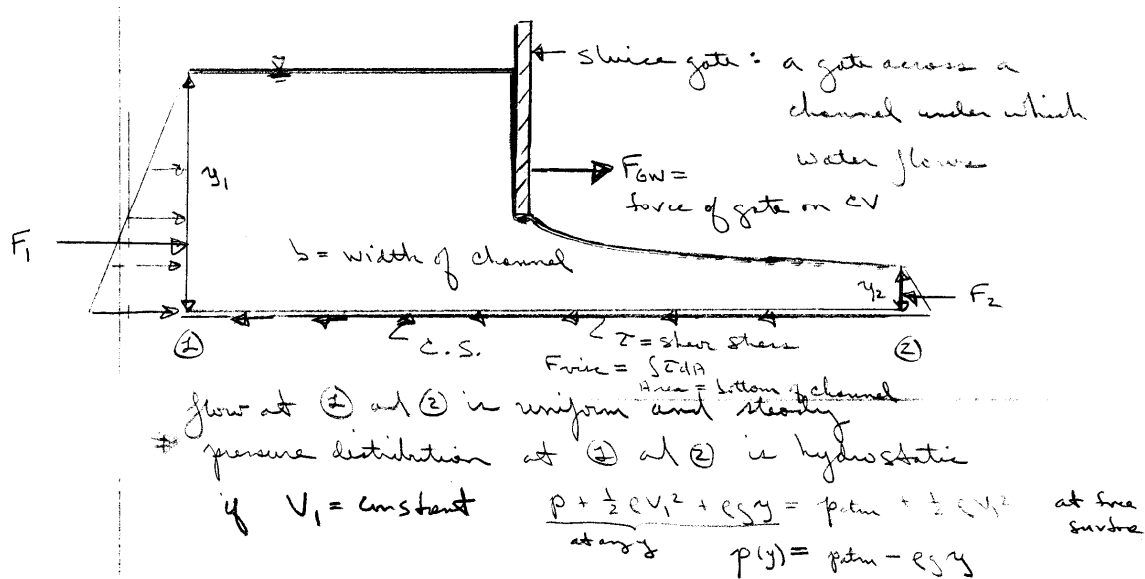 sluice gate : a gate across a
channel under which
water flows
F_GW =
force of gate on CV
y₁
F₁
b = width of channel
y₂
F₂
① C.S. τ = shear stress ②
F visc = ∫τdA
Area = bottom of channel
flow at ① and ② is uniform and steady
⇒ pressure distribution at ① and ② is hydrostatic
if V₁ = constant p + ½ ρV₁² + ρgy = patm + ½ ρV₁² at free surface
at any y
p(y) = patm - ρgy